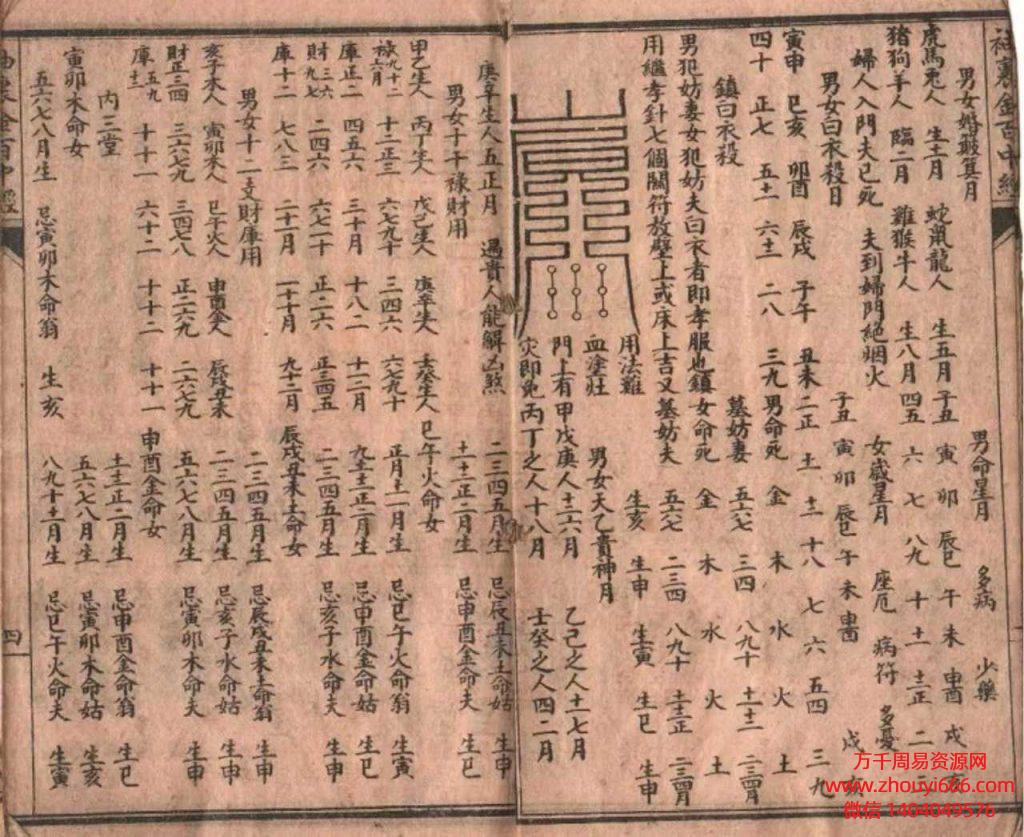 袖裏金百中經
男女婚 月 男命星月 多病 少藥
虎馬兔人 生十月 蛇鼠龍人 生五月 子丑 寅 卯 辰巳 午 未 申酉 戌 亥
豬狗羊人 臨二月 雞猴牛人 生八月 四五 六 七 八九 十 十一 十二正 二
婦人入門夫已死 夫到婦門絕烟火 女歲星月 座厄 病符 多憂
男女白衣殺日 子丑 寅 卯 辰巳 午 未 申酉 戌 亥
寅申 巳亥 卯酉 辰戌 子午 丑未 二正 十二 十一 十八 七 六 五四 三九
四十 正七 五十一 六十二 二八 三九 男命死 金 木 水 火 土
鎮白衣殺 墓妨妻 五六七 三四 八九十 十一十二 二三四月
男犯妨妻女犯妨夫白衣者即孝服也鎮 女命死 金 木 水 火 土
用繼孝針七個關符放壁上或床上吉又 墓妨夫 五六七 二三四 八九十 十二正 二三四月
用法雞 生亥 生申 生寅 生巳 生申
血塗庄 男女天乙貴神月
門上有甲戊庚人十二六月 乙己之人十一七月
灾即免丙丁之人十八月 壬癸之人四二月
庚辛生人五正月 遇貴人能解凶煞 二三四五月生 忌辰戌丑未土命姑 生申
男女十干祿財用 十一十二正二月生 忌申酉金命夫 生巳
甲乙生人 丙丁生人 戊己生人 庚辛生人 壬癸生人 巳午火命女
祿九十二六月 十二正三 六七九十 三四六 六七九十 正月十一月生 忌巳午火命翁 生寅
庫正二 四五六 三十月 十八二 十一二月 九十十一十二正二月生 忌申酉金命姑 生申
財三六九七 二四六 六七二十 正二六 正三四五 二三四五月生 忌亥子水命夫 生申
庫十二 七八三 二十一月 一十十月 九十二月 辰戌丑未土命女
男女十二支財庫用 二三四五月生 忌辰戌丑未土命翁 生申
亥子水人 寅卯木人 巳午火人 申酉金人 辰戌丑未 二三四五月生 忌亥子水命姑 生申
財正三四 三六七九 三四七八 正二六九 二六七九 五六七八月生 忌寅卯木命夫 生亥
庫五九十二 十十一 六十二 十十二 十十一 申酉金命女
內三堂 十一十二正二月生 忌申酉金命翁 生巳
寅卯木命女 五六七八月生 忌寅卯木命姑 生亥
五六七八月生 忌寅卯木命翁 生亥 八九十十一月生 忌巳午火命夫 生寅
袖裏金百中經
四
万千周易资源网
www.zhouyi666.com
微信 1404049576